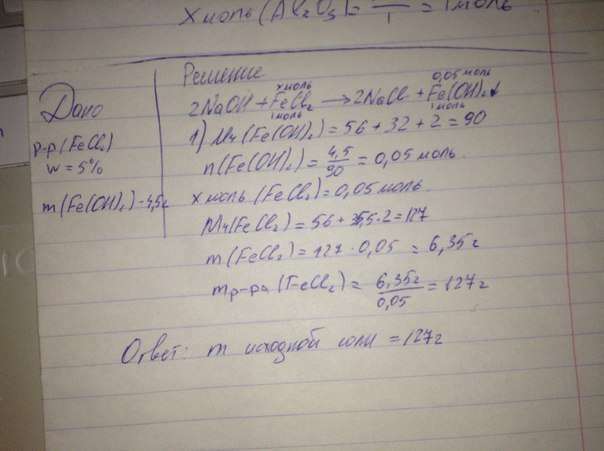 X моль (Al₂O₃) = — / 1 = 1 моль
Решение
Дано
р-р (FeCl₂)
w = 5%
m(Fe(OH)₂) = 4,5г
x моль 0,05 моль
2NaOH + FeCl₂ → 2NaCl + Fe(OH)₂↓
1 моль 1 моль
1) Mr(Fe(OH)₂) = 56 + 32 + 2 = 90
n(Fe(OH)₂) = 4,5 / 90 = 0,05 моль.
x моль (FeCl₂) = 0,05 моль
Mr(FeCl₂) = 56 + 35,5·2 = 127
m(FeCl₂) = 127 · 0,05 = 6,35г
mр-ра (FeCl₂) = 6,35г / 0,05 = 127г
Ответ: m исходной соли = 127г